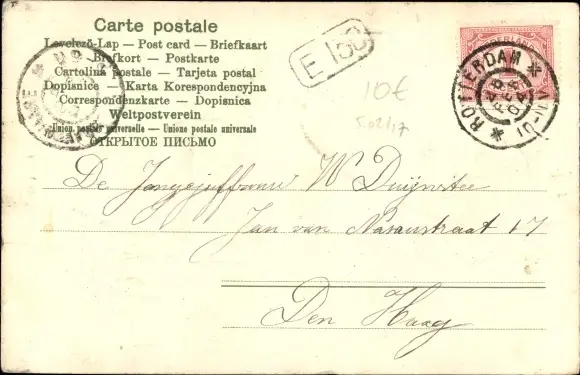 Carte postale
Levelező-Lap — Post card — Briefkaart
Brefkort — Postkarte
Cartolina postale — Tarjeta postal
Dopisnice — Karta Korespondencyjna
Correspondenzkarte — Dopisnica
Weltpostverein
Union postale universelle — Unione postale universale
ОТКРЫТОЕ ПИСЬМО
E 150
10€
NEDERLAND
ROTTERDAM
De Jongejuffrouw W Duijnstee
Jan van Nasaustraat 17
Den Haag